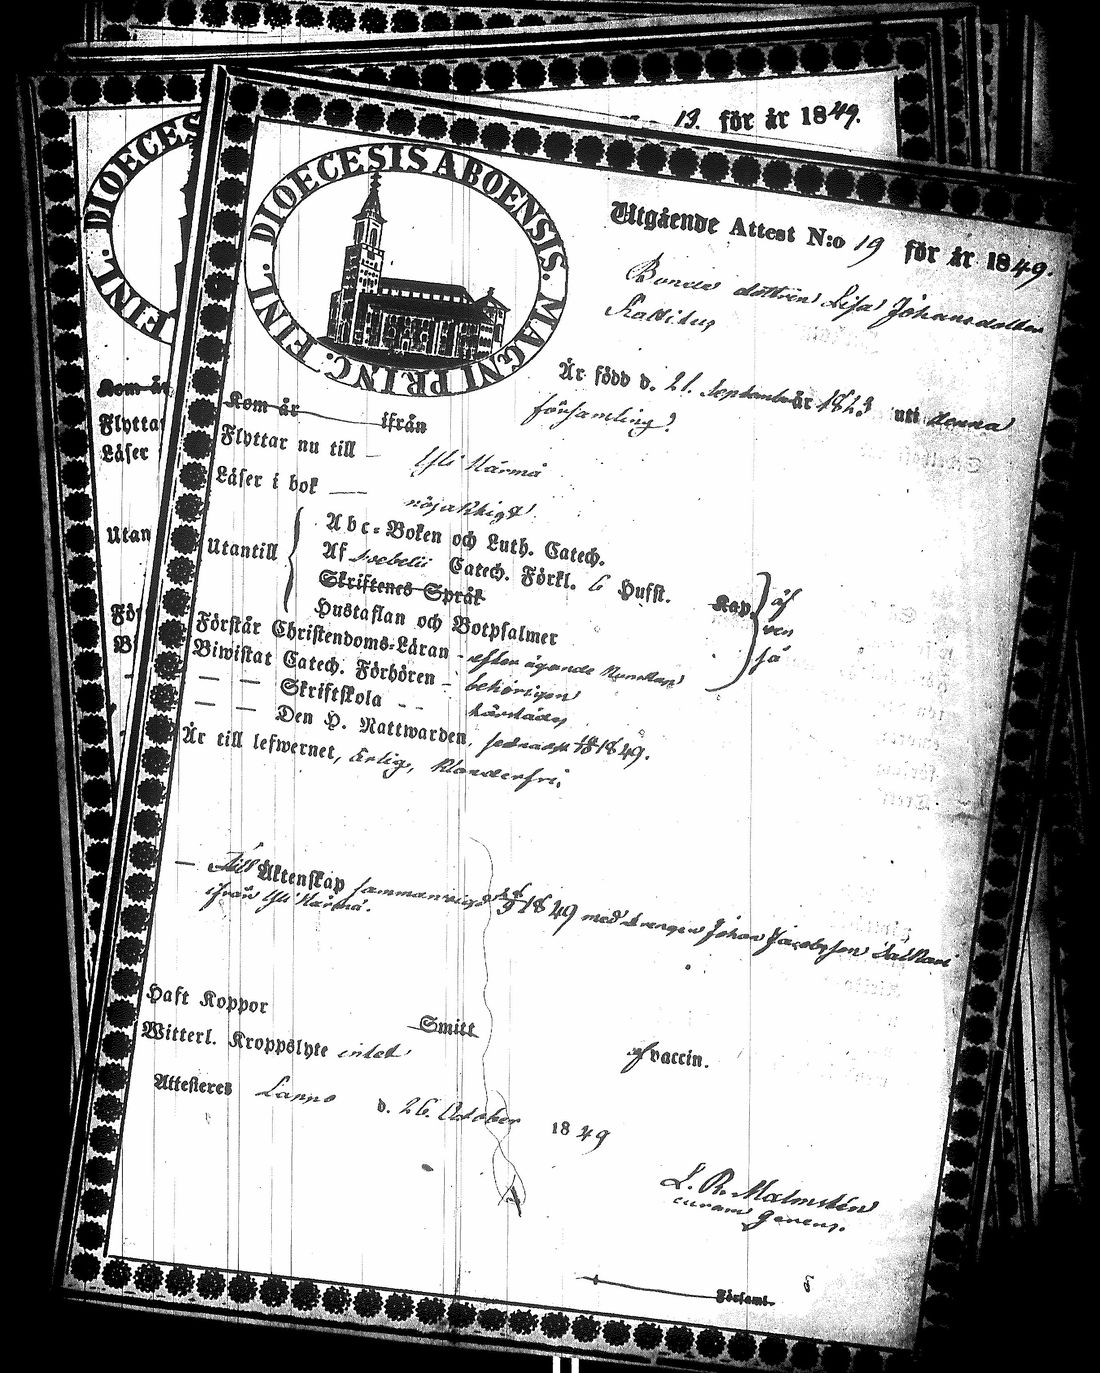 13. för år 1849.
DIOECESIS ABOENSIS. MAGNI PRINC. FINL.
DIOECES
FINL.
Utgående Attest N:o 19 för år 1849.
Bonde dottren Lisa Johansdotter
Kom år
Flytta
Läser
Utan
För
B
Är född d. 21. September år 1823 uti denna
församling.
Kom år ifrån
Flyttar nu till Yli Härmä
Läser i bok nöjaktigt
Utantill
Abc-Boken och Luth. Catech.
Af Svebelii Catech. Förkl. 6 Hufst.
Skriftenes Språk Kap.
Hustaflan och Botpsalmer
äf
ven
så
Förstår Christendoms-Läran efter ägande kunskap
Biwistat Catech. Förhören behörigen
— — Skriftskola
— — Den H. Nattwarden, sednast 1849.
Är till lefwernet, ärlig, klanderfri.
— Till Äktenskap sammanvigd 1849 med drengen Johan Jacobsson
ifrån Yli Härmä.
Haft Koppor Smitt vaccin.
Witterl. Kroppslyte intet
Attesteres Lappo d. 26. October 1849
L. R. Malmstén
curam gerens.
Församl.